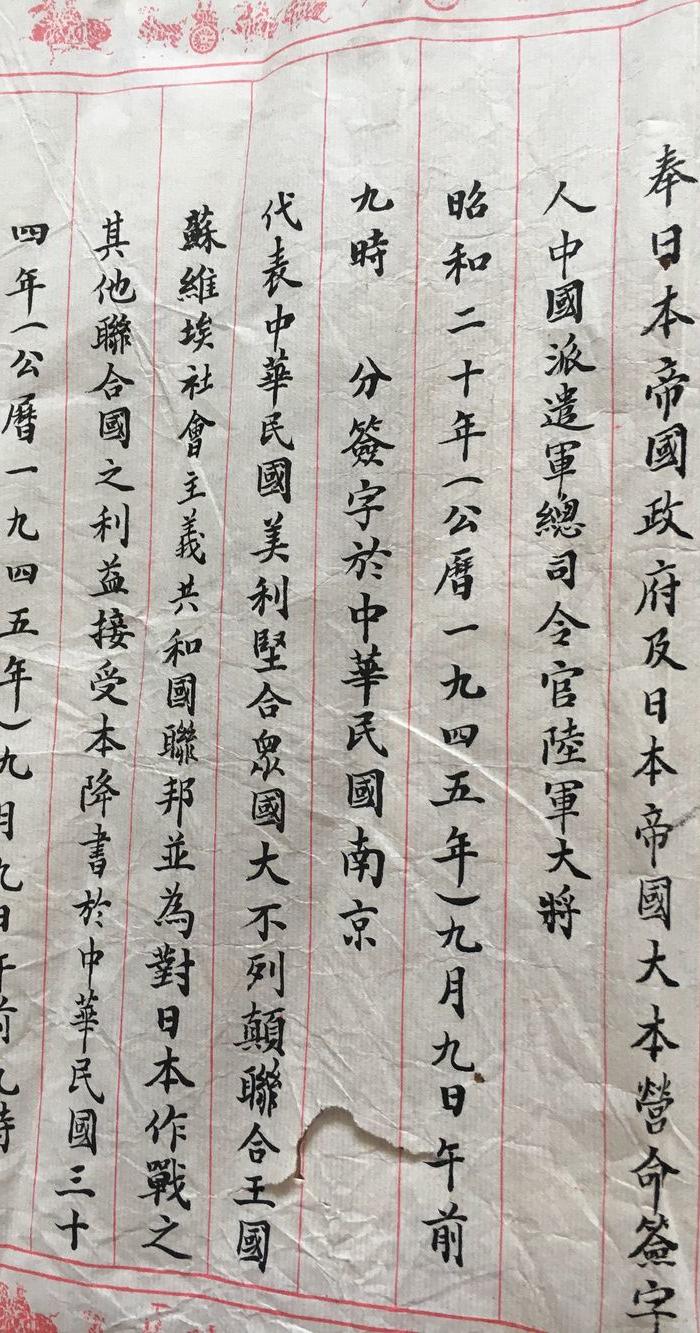 奉日本帝國政府及日本帝國大本營命簽字
人中國派遣軍總司令官陸軍大將
昭和二十年（公曆一九四五年）九月九日午前
九時　分簽字於中華民國南京
代表中華民國美利堅合衆國大不列顛聯合王國
蘇維埃社會主義共和國聯邦並為對日本作戰之
其他聯合國之利益接受本降書於中華民國三十
四年（公曆一九四五年）九月九日午前九時